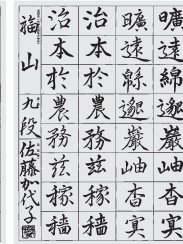 曠遠綿邈巖岫杳冥
曠遠緜邈巖岫杳冥
治本於農務茲稼穡
治本於農務茲稼穡
福山 九段 佐藤加代子